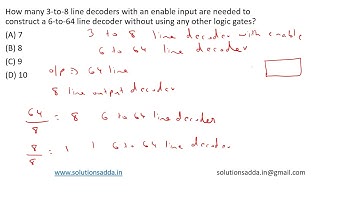 How many 3-to-8 line decoders with an enable input are needed to
construct a 6-to-64 line decoder without using any other logic gates?
(A) 7
(B) 8
(C) 9
(D) 10
3 to 8 line decoder with enable
6 to 64 line decoder
o/p => 64 line
8 line output decoder
64/8 = 8 6 to 64 line decoder
8/8 = 1 1 6 to 64 line decoder
www.solutionsadda.in
solutionsadda.in@gmail.com